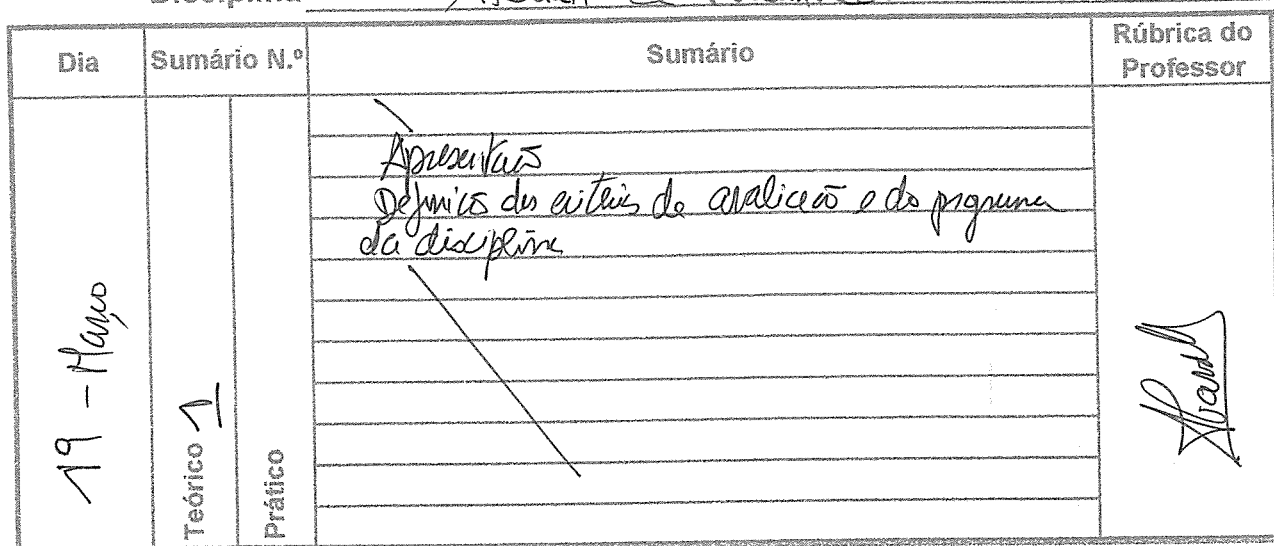 Disciplina
Dia
Sumário N.º
Sumário
Rúbrica do
Professor
19 - Março
Teórico 1
Prático
Apresentação
Definição dos critérios de avaliação e do programa
da disciplina